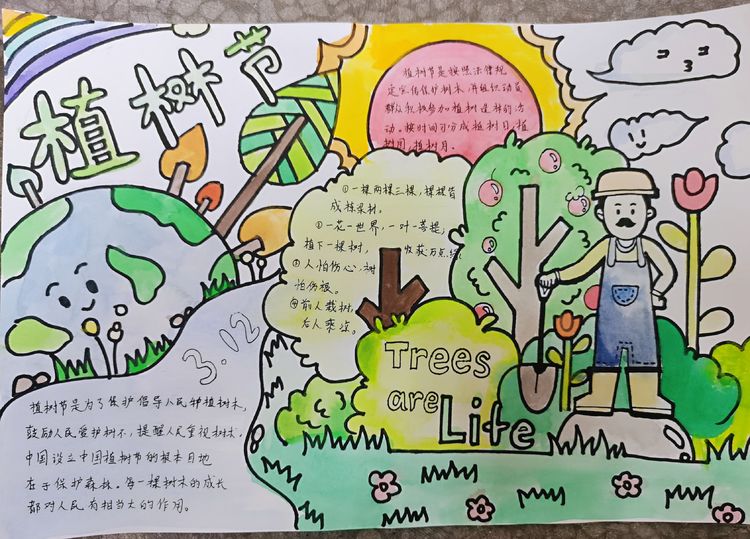 植树节
植树节是按照法律规
定宣传保护树木,并组织动员
群众积极参加植树造林的活
动。按时间可分成植树日,植
树周,植树月。
①一棵两棵三棵,棵棵皆
成栋梁材。
②一花一世界,一叶一菩提,
植下一棵树,收获万点绿
③人怕伤心,树
怕伤根。
④前人栽树,
后人乘凉。
3.12
Trees
are
Life
植树节是为了保护倡导人民种植树木,
鼓励人民爱护树木,提醒人民重视树木.
中国设立中国植树节的根本目地
在于保护森林。每一棵树木的成长
都对人民有相当大的作用。